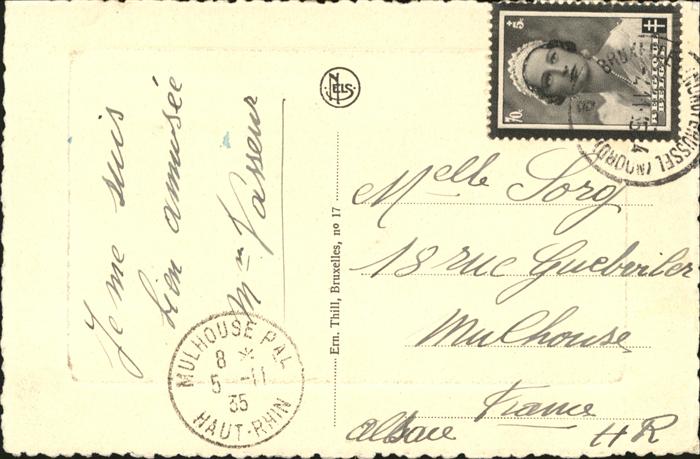 Je me suis
bien amusée
Mme Vasseur
NELS
Ern. Thill, Bruxelles, no 17
+5c
70c
BELGIQUE
BELGIË
BRUSSEL (NOORD)
Melle Sorg
18 rue Guebwiler
Mulhouse
France
Alsace HR
MULHOUSE PAL
8 *
5 -11
35
HAUT-RHIN